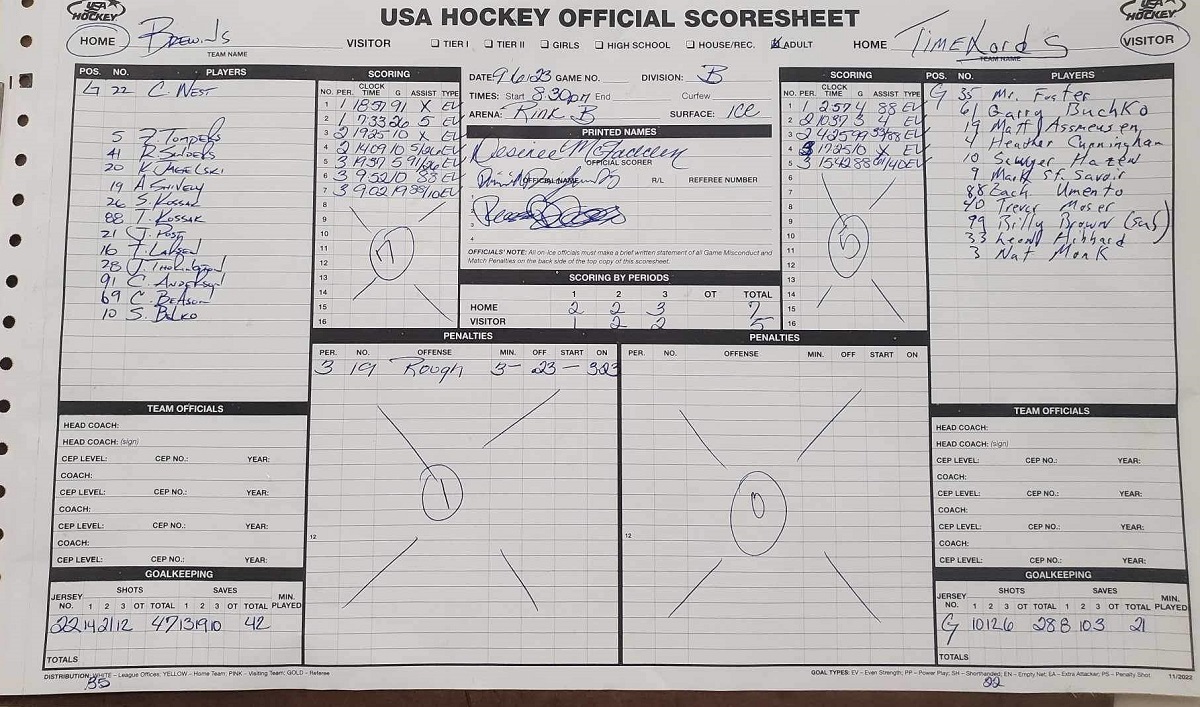 USA HOCKEY
USA HOCKEY OFFICIAL SCORESHEET
USA HOCKEY
HOME Brewins TEAM NAME VISITOR ☐ TIER I ☐ TIER II ☐ GIRLS ☐ HIGH SCHOOL ☐ HOUSE/REC. ☒ ADULT HOME TimeLords TEAM NAME VISITOR
POS. NO. PLAYERS
G 22 C. West
5
41
20
19 A. Snively
26 S. Kossak
88 T. Kossak
21 J. Post
16 T. Larsen
28
91 C. Anderson
69 C. Beason
10 S. Belko
SCORING
NO. PER. CLOCK TIME G ASSIST TYPE
1 1 1857 91 X EV
2 1 733 26 5 EV
3 2 1925 10 X EV
4 2 1409 10 5/26 EV
5 3 1937 5 91/26 EV
6 3 952 10 88 EV
7 3 902 19 88/10 EV
8
9
10
11
12
13
14
15
16
7
DATE: 9/6/23 GAME NO. DIVISION: B
TIMES: Start 8:30pm End Curfew
ARENA: Rink B SURFACE: ICE
PRINTED NAMES
Desiree McFadden
OFFICIAL SCORER
OFFICIAL NAME R/L REFEREE NUMBER
OFFICIALS' NOTE: All on-ice officials must make a brief written statement of all Game Misconduct and
Match Penalties on the back side of the top copy of this scoresheet.
SCORING BY PERIODS
1 2 3 OT TOTAL
HOME 2 2 3 7
VISITOR 1 2 2 5
SCORING
NO. PER. CLOCK TIME G ASSIST TYPE
1 1 257 4 88 EV
2 2 1037 3 4 EV
3 2 425 99 33/88 EV
4 3 1725 10 X EV
5 3 1542 88 61/40 EV
6
7
8
9
10
11
12
13
14
15
16
5
POS. NO. PLAYERS
G 35 Mr. Foster
61 Garry Buchko
19 Matt Assmusen
4 Heather Cunningham
10 Sawyer Hazen
9 Mark St. Savoir
88 Zach Umento
40 Trevor Moser
99 Billy Brown (sub)
33 Leon Hibbard
3 Nat Monk
PENALTIES
PER. NO. OFFENSE MIN. OFF START ON
3 19 Rough 3 - 23 - 323
12
1
PENALTIES
PER. NO. OFFENSE MIN. OFF START ON
12
0
TEAM OFFICIALS
HEAD COACH:
HEAD COACH: (sign)
CEP LEVEL: CEP NO.: YEAR:
COACH:
CEP LEVEL: CEP NO.: YEAR:
COACH:
CEP LEVEL: CEP NO.: YEAR:
COACH:
CEP LEVEL: CEP NO.: YEAR:
GOALKEEPING
JERSEY NO. SHOTS 1 2 3 OT TOTAL SAVES 1 2 3 OT TOTAL MIN. PLAYED
22 14 21 12 47 13 19 10 42
TOTALS
TEAM OFFICIALS
HEAD COACH:
HEAD COACH: (sign)
CEP LEVEL: CEP NO.: YEAR:
COACH:
CEP LEVEL: CEP NO.: YEAR:
COACH:
CEP LEVEL: CEP NO.: YEAR:
COACH:
CEP LEVEL: CEP NO.: YEAR:
GOALKEEPING
JERSEY NO. SHOTS 1 2 3 OT TOTAL SAVES 1 2 3 OT TOTAL MIN. PLAYED
G 10 12 6 28 8 10 3 21
TOTALS
DISTRIBUTION: WHITE – League Offices; YELLOW – Home Team; PINK – Visiting Team; GOLD – Referee
GOAL TYPES: EV – Even Strength; PP – Power Play; SH – Shorthanded; EN – Empty Net; EA – Extra Attacker; PS – Penalty Shot. 11/2022
35
22